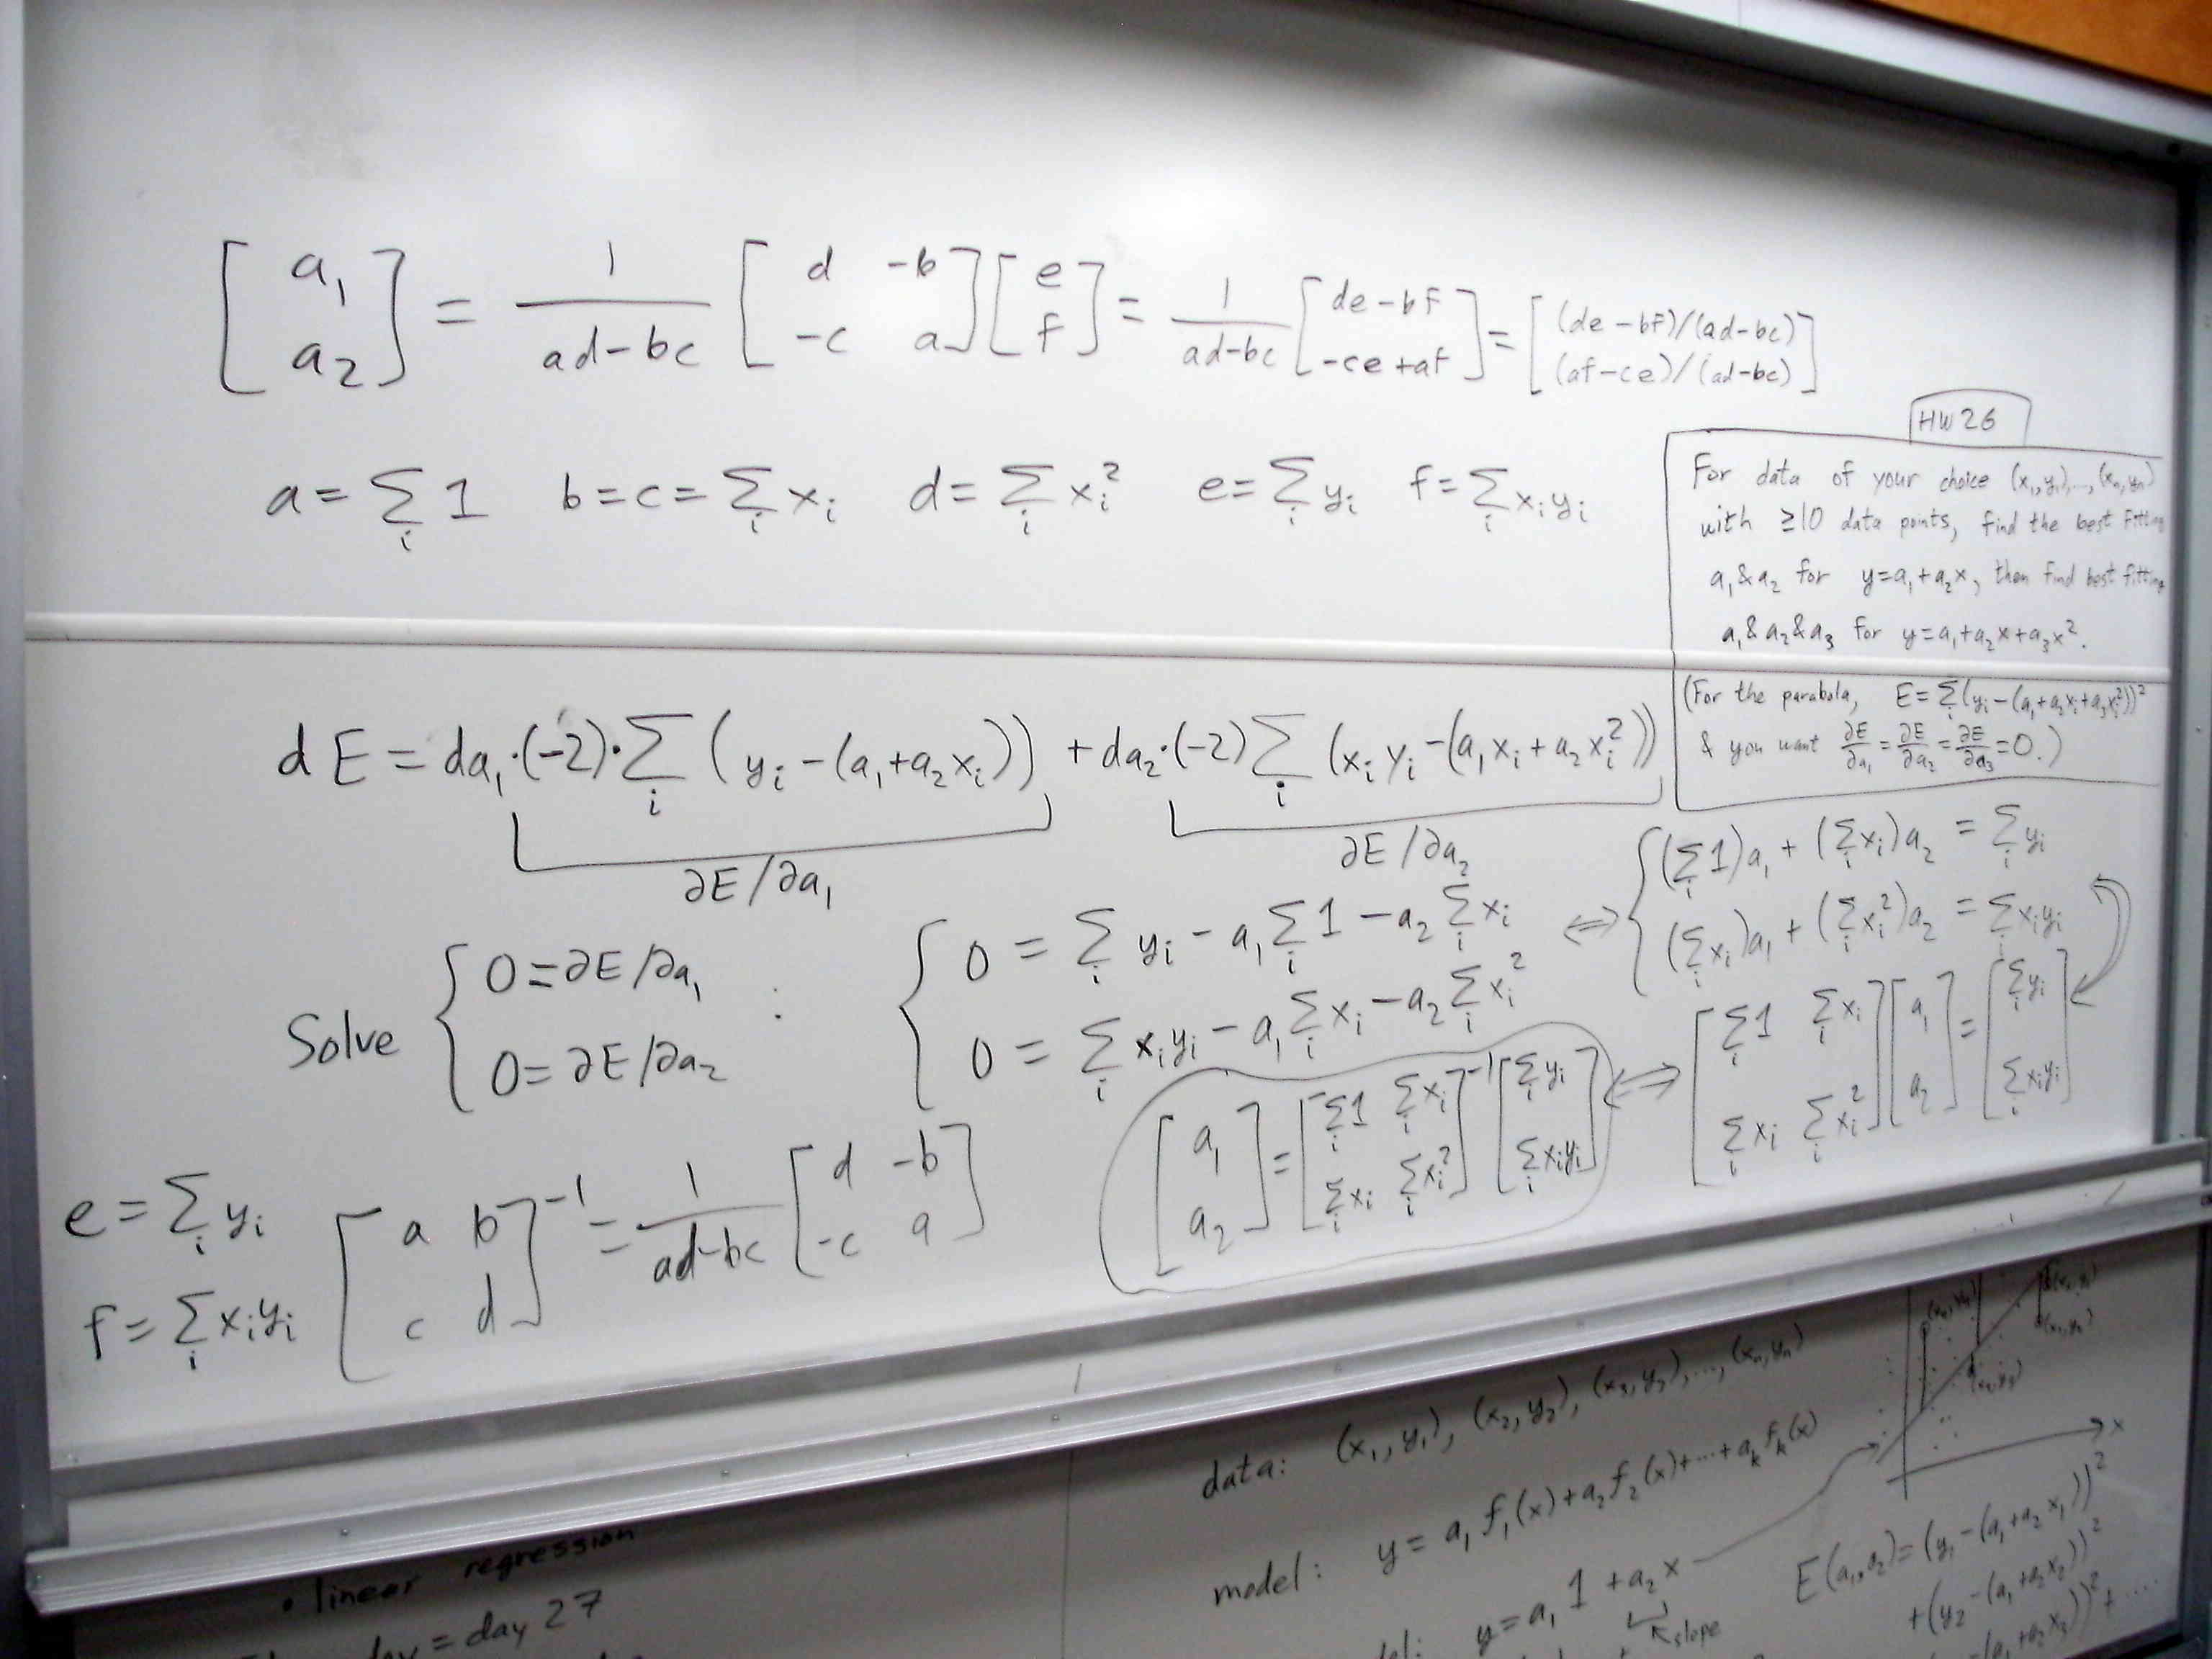 [a₁ a₂] = 1/(ad-bc) [d -b; -c a] [e; f] = 1/(ad-bc) [de-bf; -ce+af] = [(de-bf)/(ad-bc); (af-ce)/(ad-bc)]
a = Σᵢ 1   b = c = Σᵢ xᵢ   d = Σᵢ xᵢ²   e = Σᵢ yᵢ   f = Σᵢ xᵢyᵢ
HW 26
For data of your choice (x₁,y₁),...,(xₙ,yₙ)
with ≥10 data points, find the best fitting
a₁ & a₂ for y=a₁+a₂x, then find best fitting
a₁ & a₂ & a₃ for y=a₁+a₂x+a₃x².
(For the parabola, E=Σᵢ(yᵢ-(a₁+a₂xᵢ+a₃xᵢ²))²
& you want ∂E/∂a₁ = ∂E/∂a₂ = ∂E/∂a₃ = 0.)
dE = da₁·(-2)·Σᵢ (yᵢ-(a₁+a₂xᵢ)) + da₂·(-2)Σᵢ (xᵢyᵢ-(a₁xᵢ+a₂xᵢ²))
∂E/∂a₁   ∂E/∂a₂
Solve { 0=∂E/∂a₁
0=∂E/∂a₂ :
{ 0 = Σᵢ yᵢ - a₁Σᵢ1 - a₂Σᵢxᵢ
0 = Σᵢ xᵢyᵢ - a₁Σᵢxᵢ - a₂Σᵢxᵢ²
⇔ { (Σᵢ1)a₁ + (Σᵢxᵢ)a₂ = Σᵢyᵢ
(Σᵢxᵢ)a₁ + (Σᵢxᵢ²)a₂ = Σᵢxᵢyᵢ
[Σᵢ1 Σᵢxᵢ; Σᵢxᵢ Σᵢxᵢ²] [a₁; a₂] = [Σᵢyᵢ; Σᵢxᵢyᵢ]
⇔ [a₁; a₂] = [Σᵢ1 Σᵢxᵢ; Σᵢxᵢ Σᵢxᵢ²]⁻¹ [Σᵢyᵢ; Σᵢxᵢyᵢ]
e = Σᵢ yᵢ
f = Σᵢ xᵢyᵢ
[a b; c d]⁻¹ = 1/(ad-bc) [d -b; -c a]
• linear regression
= day 27
data: (x₁,y₁), (x₂,y₂), (x₃,y₃),..., (xₙ,yₙ)
model: y = a₁f₁(x)+a₂f₂(x)+···+aₖfₖ(x)
y = a₁1 + a₂x
slope
x
E(a₁,a₂) = (y₁-(a₁+a₂x₁))²
+(y₂-(a₁+a₂x₂))²
(a₁+a₂x₃))²+....